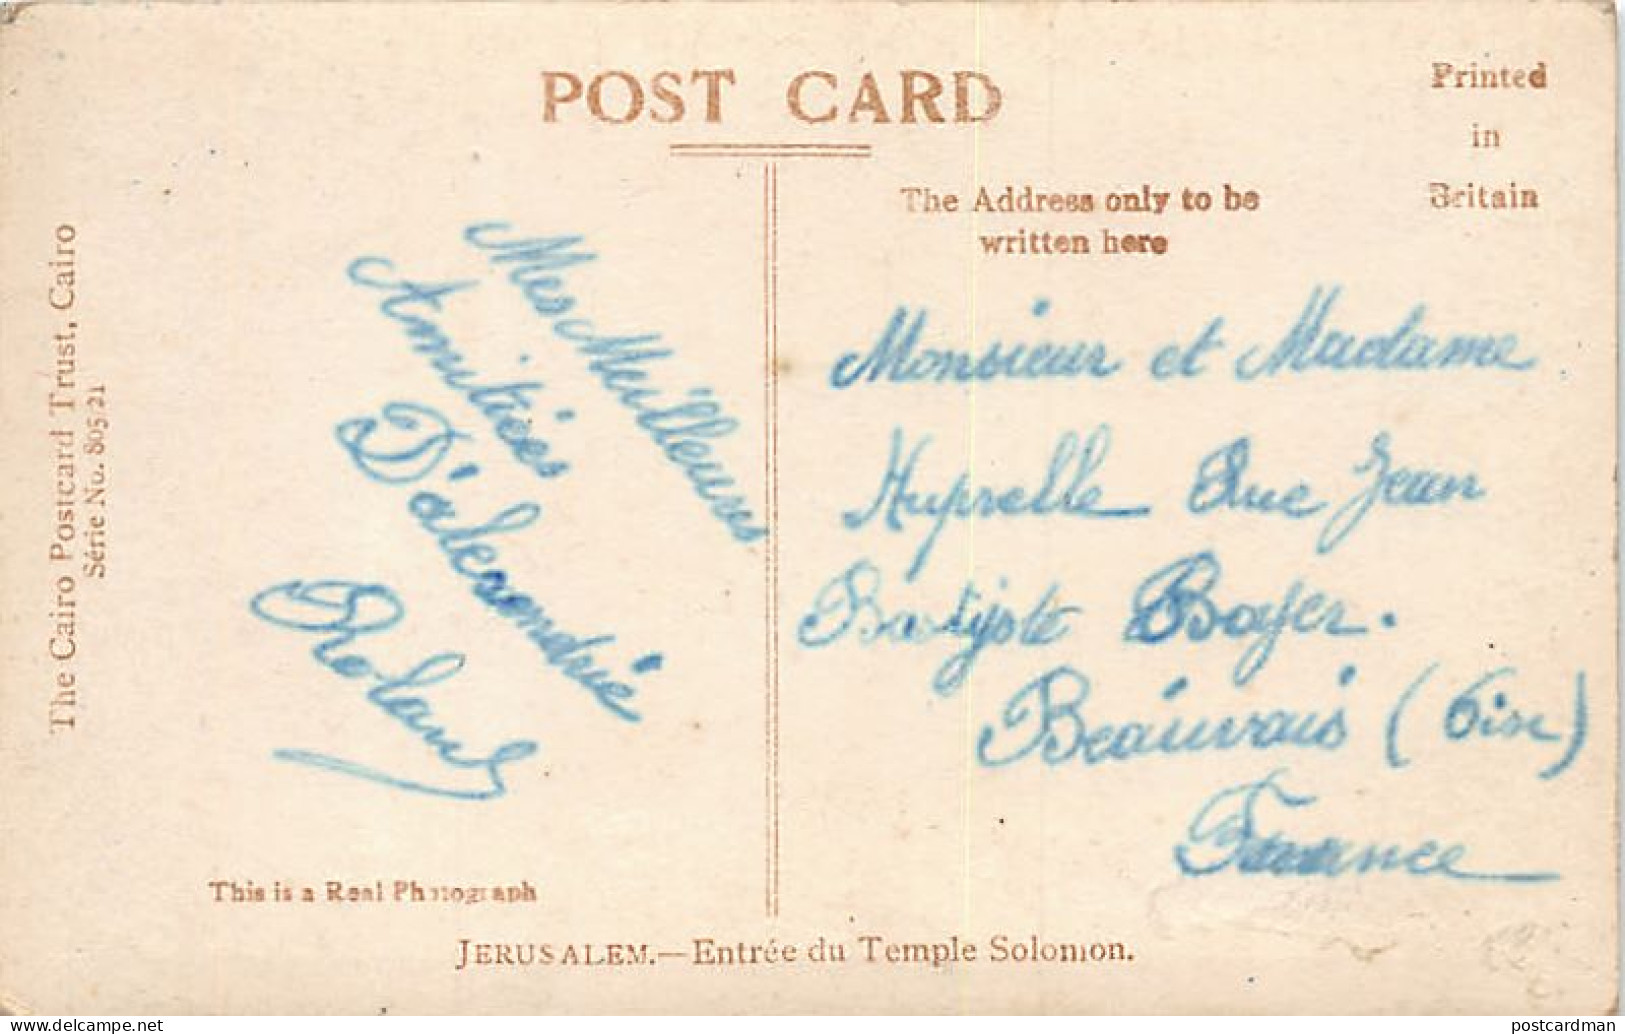 POST CARD
Printed
in
Britain
The Address only to be
written here
The Cairo Postcard Trust, Cairo
Série No. 805 21
Mes Meilleures
Amitiés
D'alexandrie
Roland
Monsieur et Madame
Huprelle Rue Jean
Baptiste Boyer.
Beauvais (Oise)
France
This is a Real Photograph
JERUSALEM.—Entrée du Temple Solomon.
www.delcampe.net
postcardman